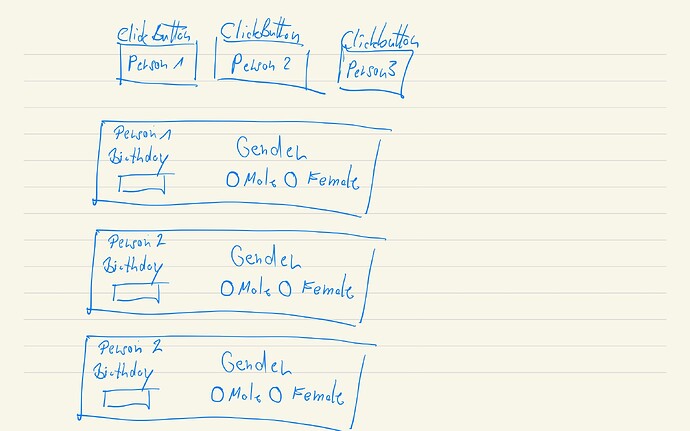 ClickButton ClickButton Clickbutton
Person 1 Person 2 Person3
Person 1
Birthday Gender
Male Female
Person 2
Birthday Gender
Male Female
Person 2
Birthday Gender
Male Female